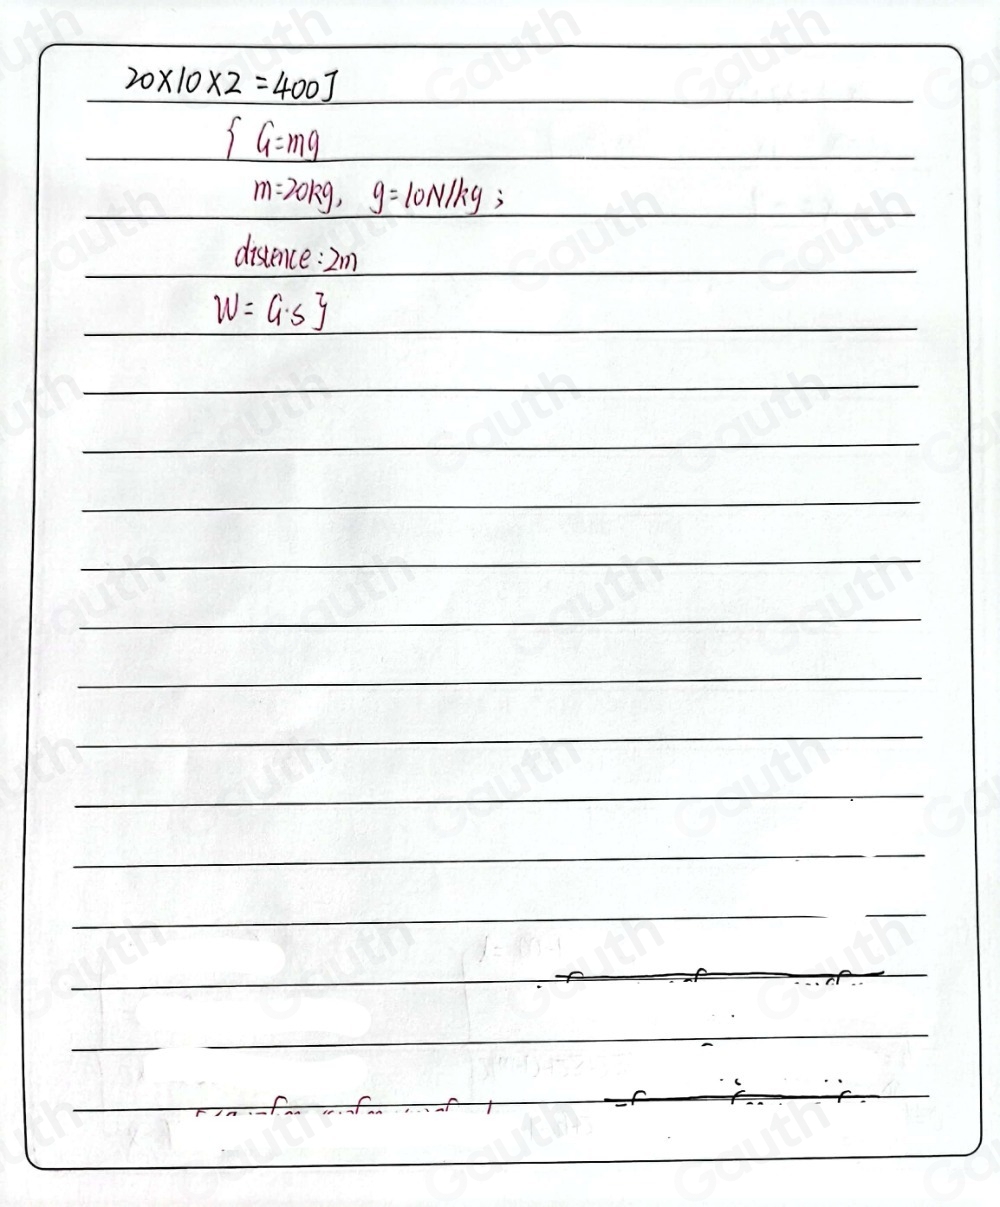 20×10×2=400J
{ G=mg
m=20kg, g=10N/kg;
distence:2m
W=G·s}